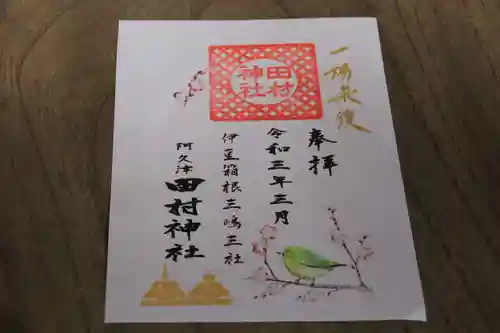 一陽来復
奉拝
令和三年三月
伊豆箱根三嶋三社
阿久津
田村神社
田村
神社